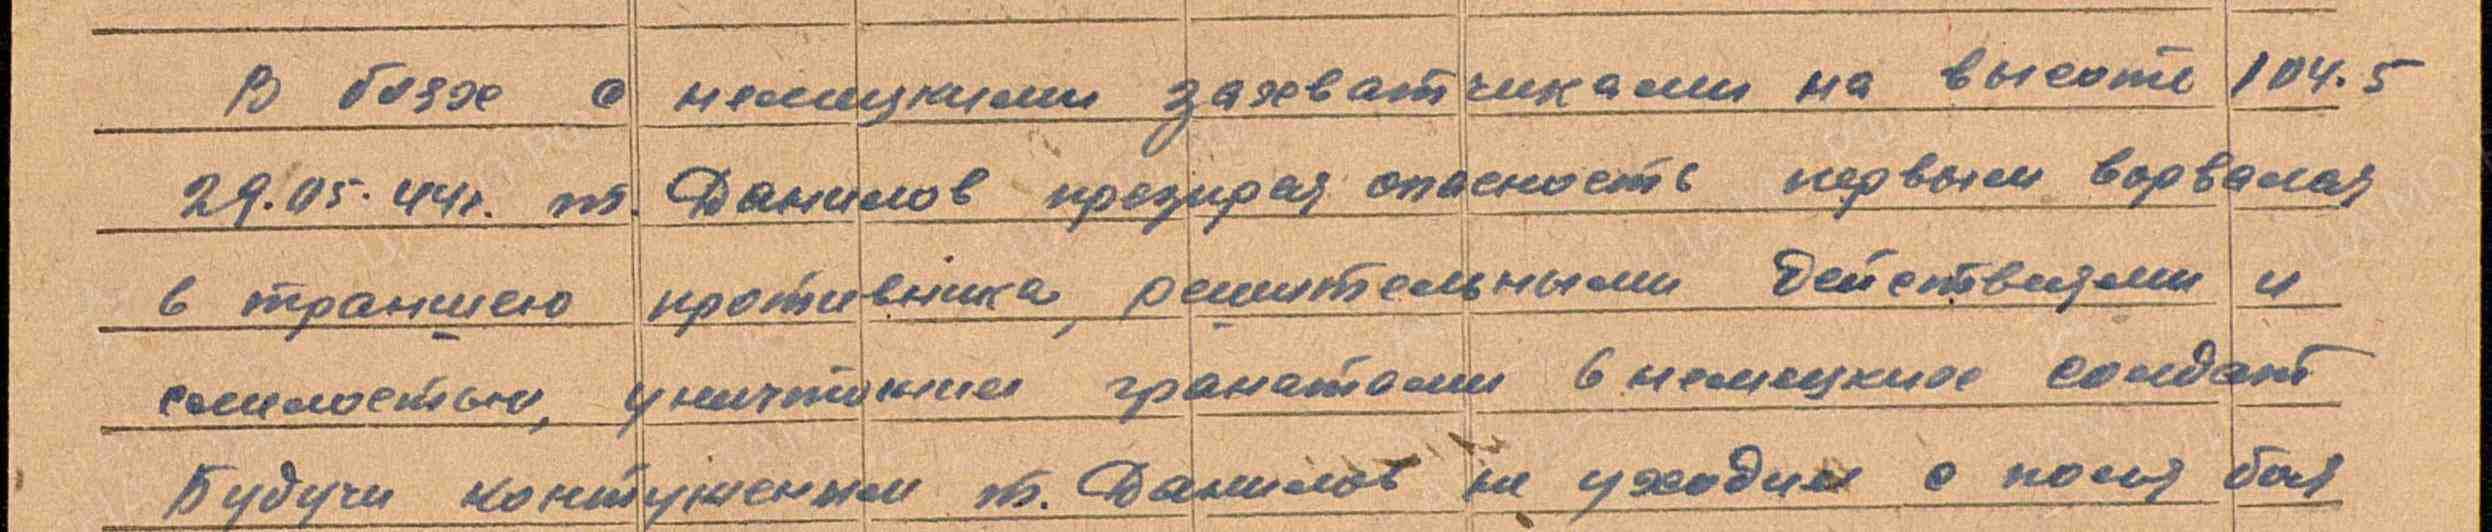 В боях с немецкими захватчиками на высоте 104.5
29.05.44г. т. Данилов презирая опасность первым ворвался
в траншею противника, решительными действиями и
смелостью, уничтожил гранатами 6 немецких солдат
Будучи контуженным т. Данилов не уходил с поля боя